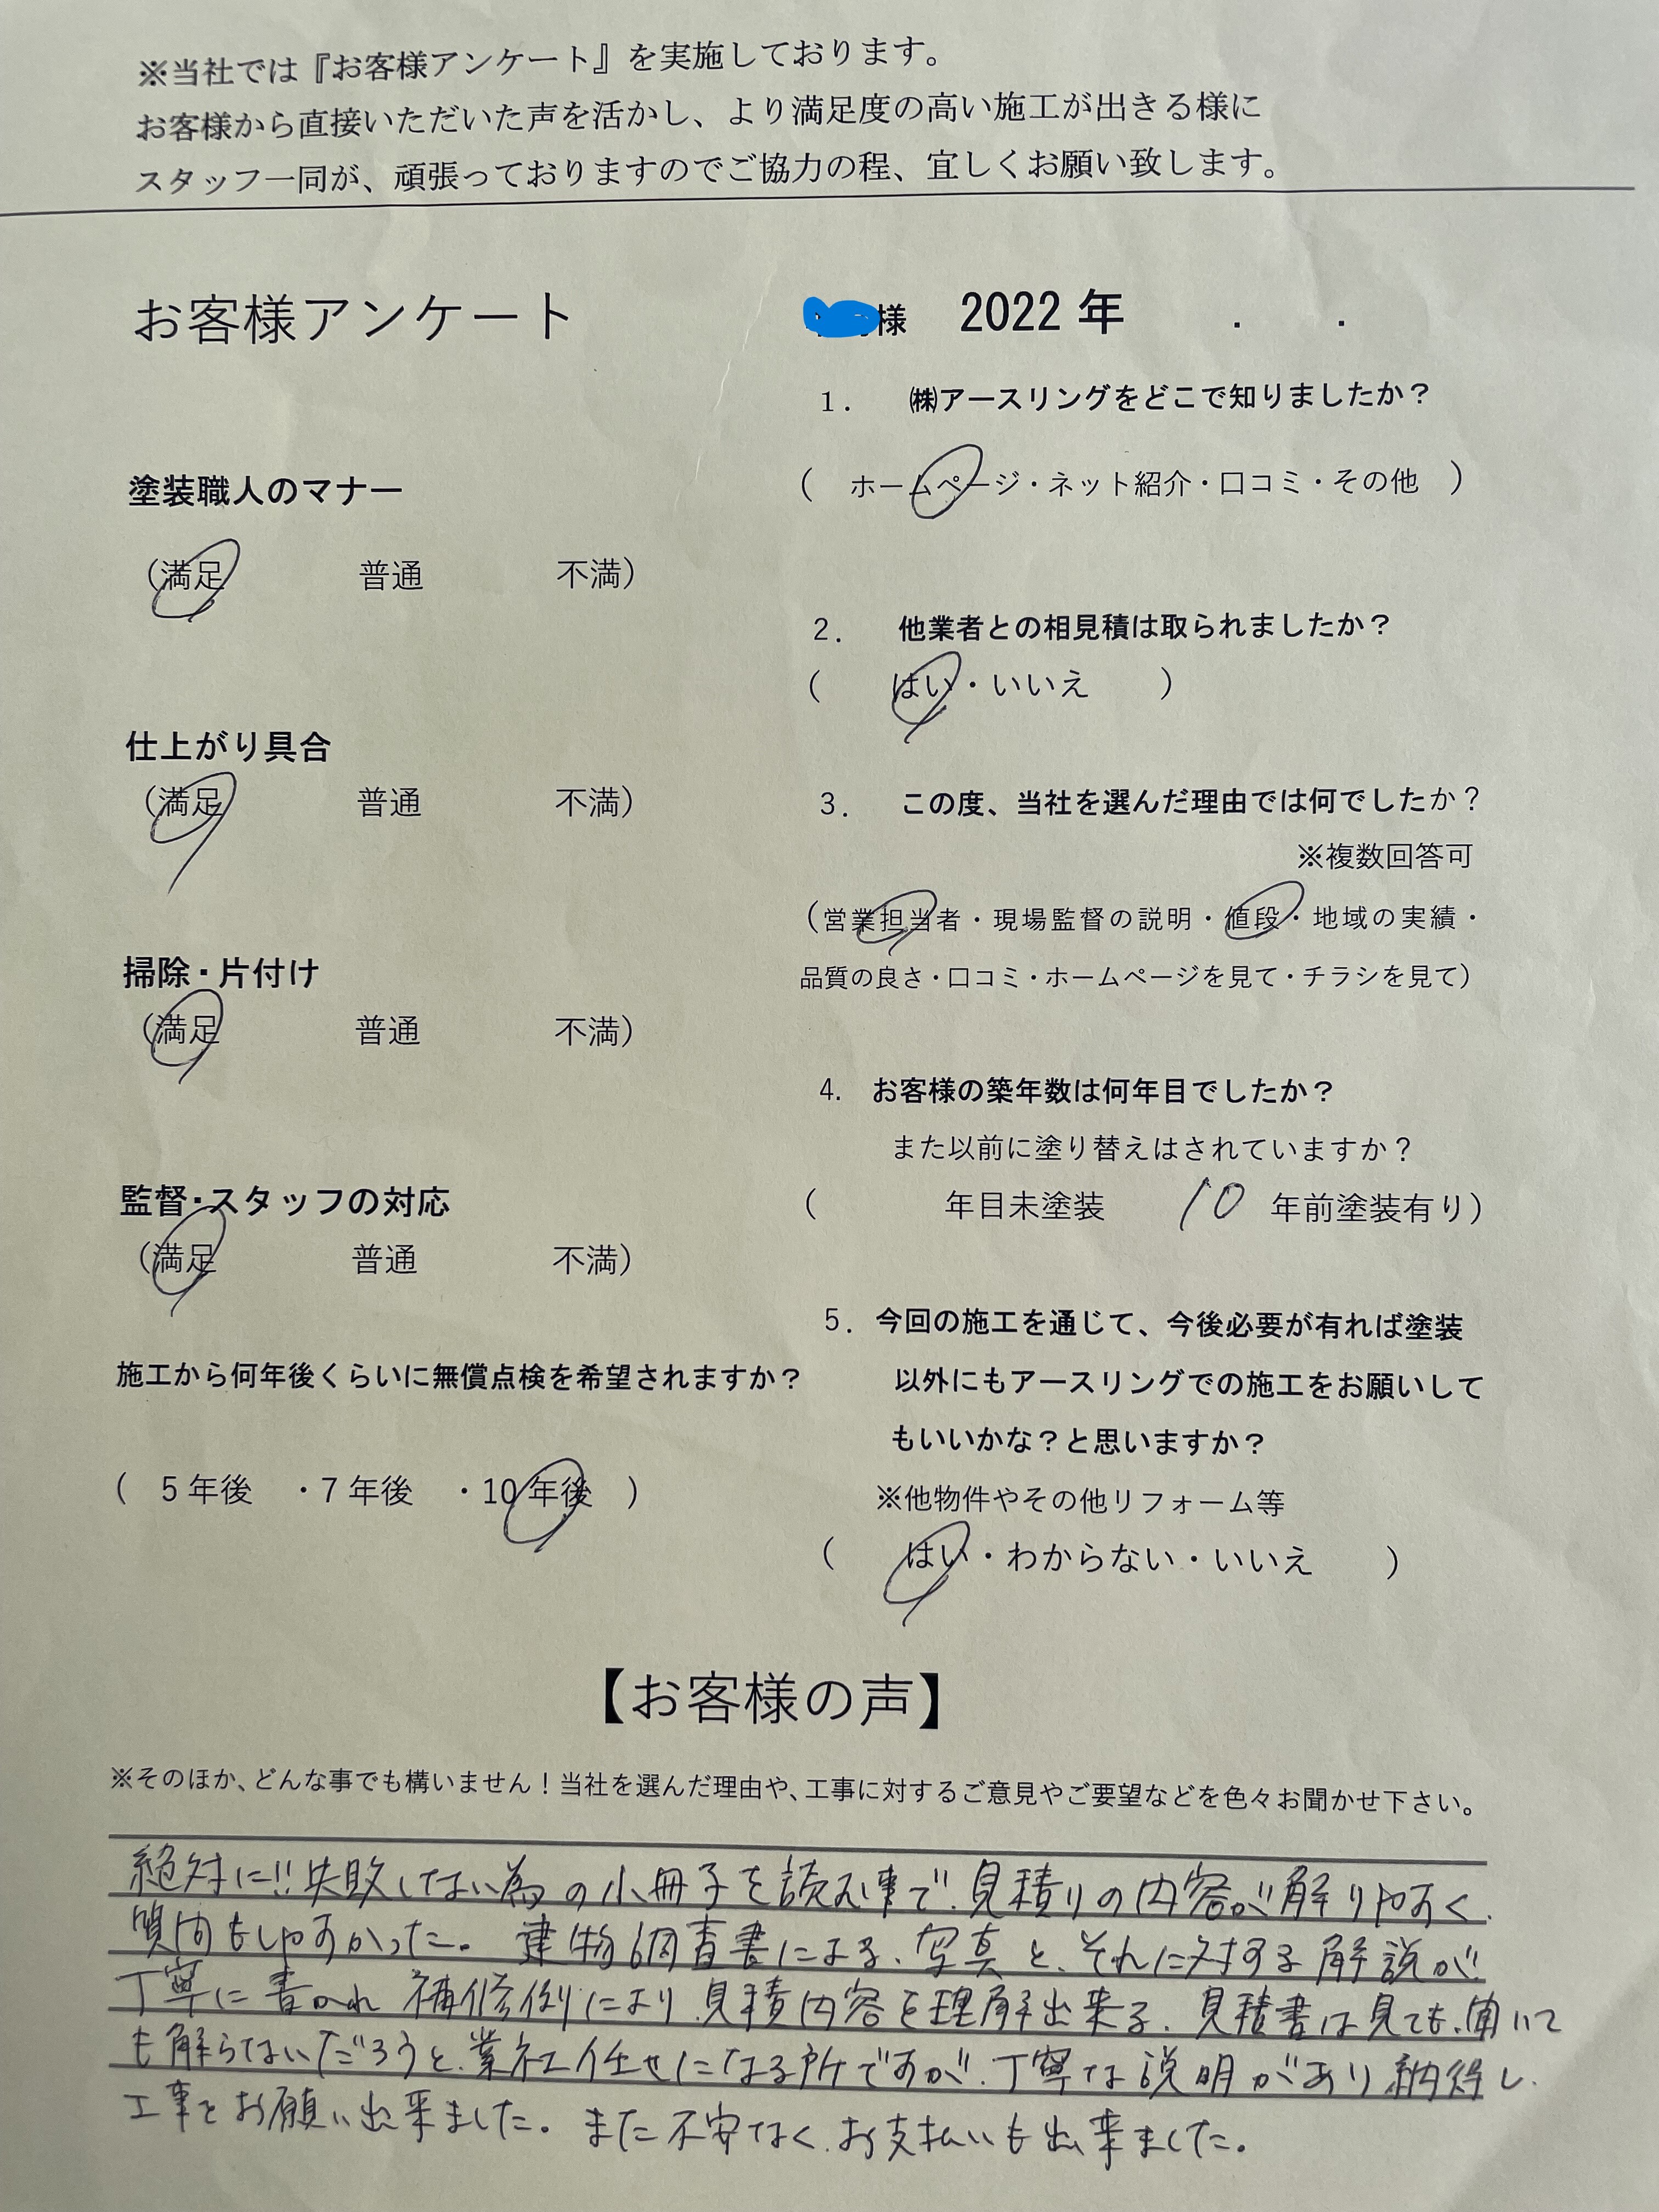 ※当社では『お客様アンケート』を実施しております。
お客様から直接いただいた声を活かし、より満足度の高い施工が出きる様に
スタッフ一同が、頑張っておりますのでご協力の程、宜しくお願い致します。
お客様アンケート
塗装職人のマナー
（満足　普通　不満）
仕上がり具合
（満足　普通　不満）
掃除・片付け
（満足　普通　不満）
監督・スタッフの対応
（満足　普通　不満）
施工から何年後くらいに無償点検を希望されますか？
（　5年後　・7年後　・10年後　）
様　2022年　．　．
1．　㈱アースリングをどこで知りましたか？
（　ホームページ・ネット紹介・口コミ・その他　）
2．　他業者との相見積は取られましたか？
（　はい・いいえ　）
3．　この度、当社を選んだ理由では何でしたか？
※複数回答可
（営業担当者・現場監督の説明・値段・地域の実績・
品質の良さ・口コミ・ホームページを見て・チラシを見て）
4.　お客様の築年数は何年目でしたか？
また以前に塗り替えはされていますか？
（　年目未塗装　10　年前塗装有り）
5．今回の施工を通じて、今後必要が有れば塗装
以外にもアースリングでの施工をお願いして
もいいかな？と思いますか？
※他物件やその他リフォーム等
（　はい・わからない・いいえ　）
【お客様の声】
※そのほか、どんな事でも構いません！当社を選んだ理由や、工事に対するご意見やご要望などを色々お聞かせ下さい。
絶対に!!失敗しない為の小冊子を読む事で、見積りの内容が解りやすく、
質問もしやすかった。建物調査書による、写真と、それに対する解説が
丁寧に書かれ 補修例により、見積内容を理解出来る、見積書は見ても、聞いて
も解らないだろうと、業社任せになる所ですが、丁寧な説明があり納得し、
工事をお願い出来ました。また不安なく、お支払いも出来ました。